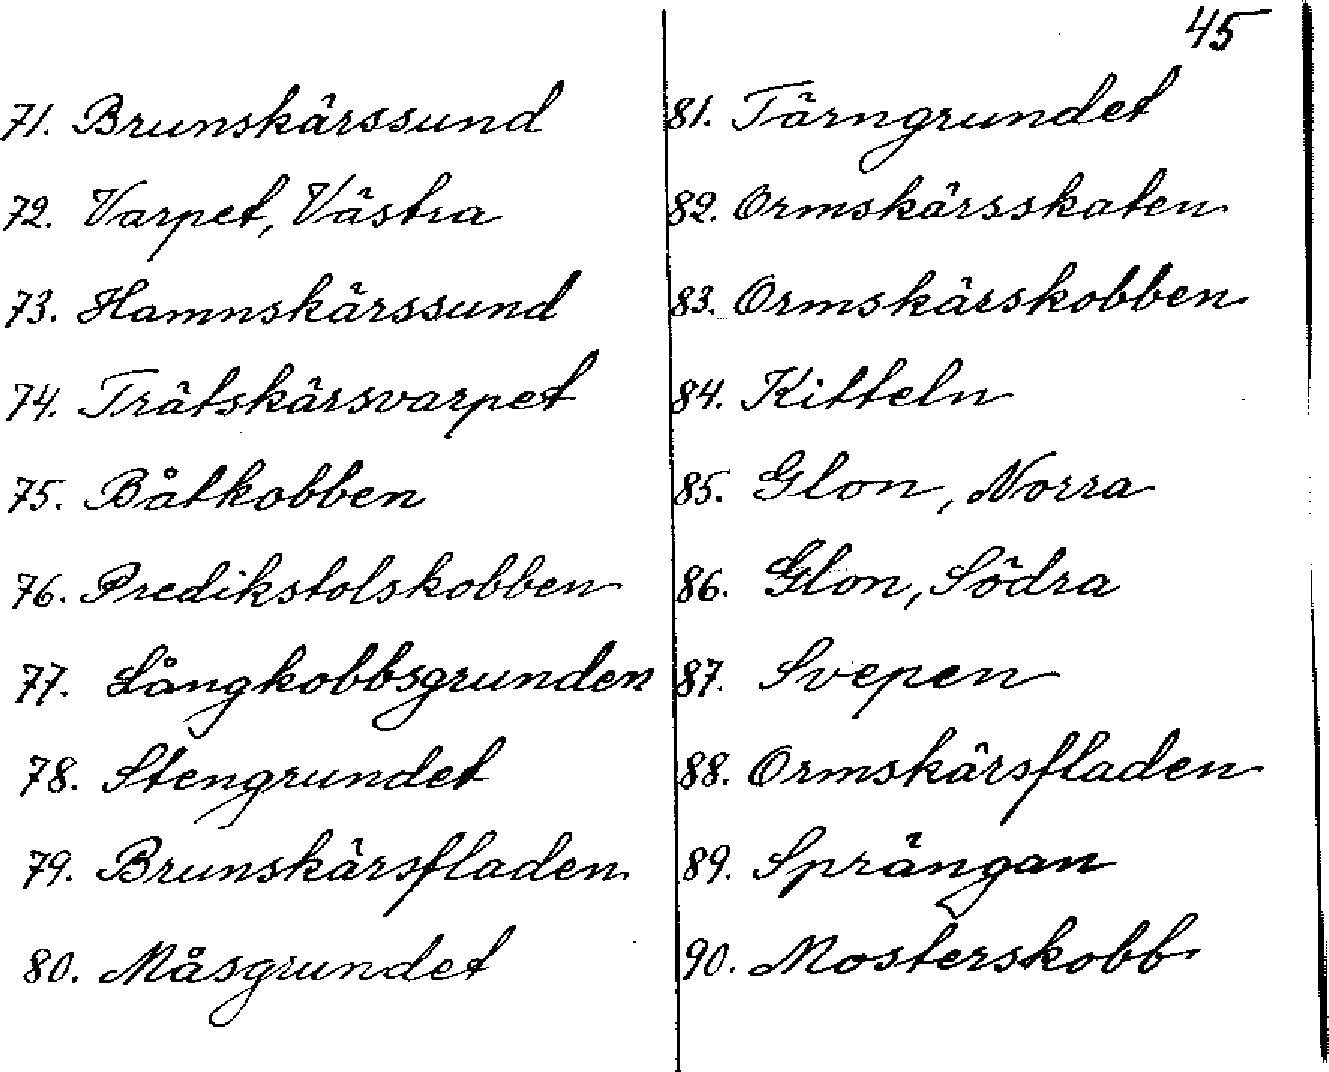 45
71. Brunskärssund
72. Varpet, Västra
73. Hamnskärssund
74. Trätskärsvarpet
75. Båtkobben
76. Predikstolskobben
77. Långkobbsgrunden
78. Stengrundet
79. Brunskärsfladen
80. Måsgrundet
81. Tärngrundet
82. Ormskärsskaten
83. Ormskärskobben
84. Kitteln
85. Glon, Norra
86. Glon, Södra
87. Svepen
88. Ormskärsfladen
89. Sprängan
90. Mosterskobb